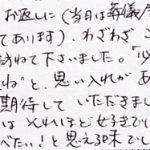 お返しに(当日は葬儀
てあります)、わざわざ こ
訪ねて下さいました。"必
ね"と、思い入れがあ
期待して いただきまし
は それほど好きでし
べたい!と思える味でし